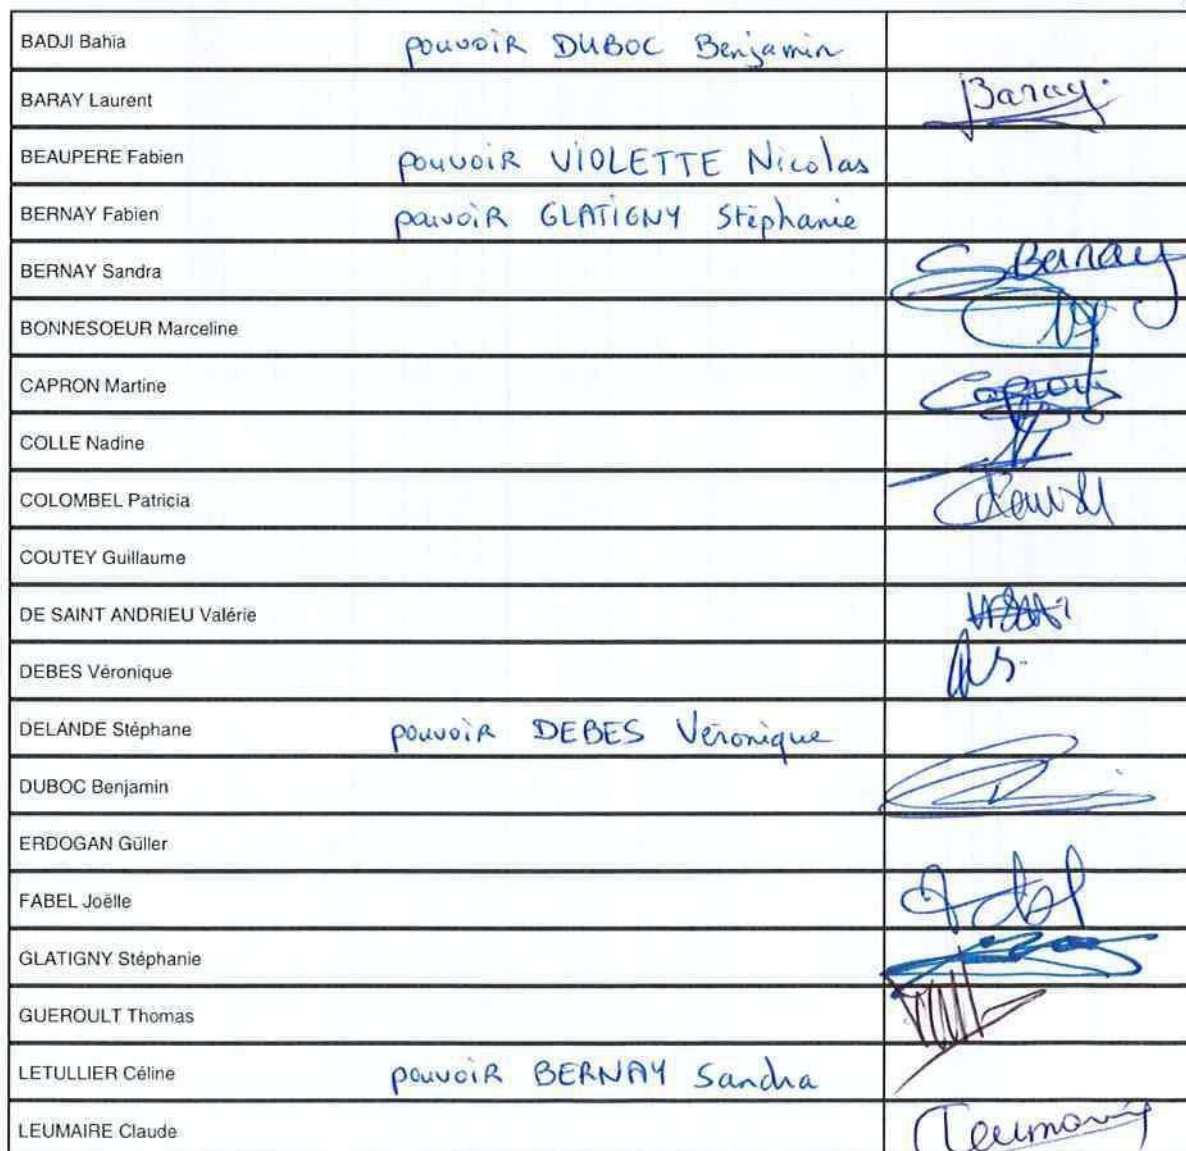 BADJI Bahia pouvoir DUBOC Benjamin
BARAY Laurent Baray.
BEAUPERE Fabien pouvoir VIOLETTE Nicolas
BERNAY Fabien pouvoir GLATIGNY Stéphanie
BERNAY Sandra S Bernay
BONNESOEUR Marceline
CAPRON Martine Capron
COLLE Nadine
COLOMBEL Patricia
COUTEY Guillaume
DE SAINT ANDRIEU Valérie
DEBES Véronique
DELANDE Stéphane pouvoir DEBES Véronique
DUBOC Benjamin
ERDOGAN Güller
FABEL Joëlle
GLATIGNY Stéphanie
GUEROULT Thomas
LETULLIER Céline pouvoir BERNAY Sandra
LEUMAIRE Claude